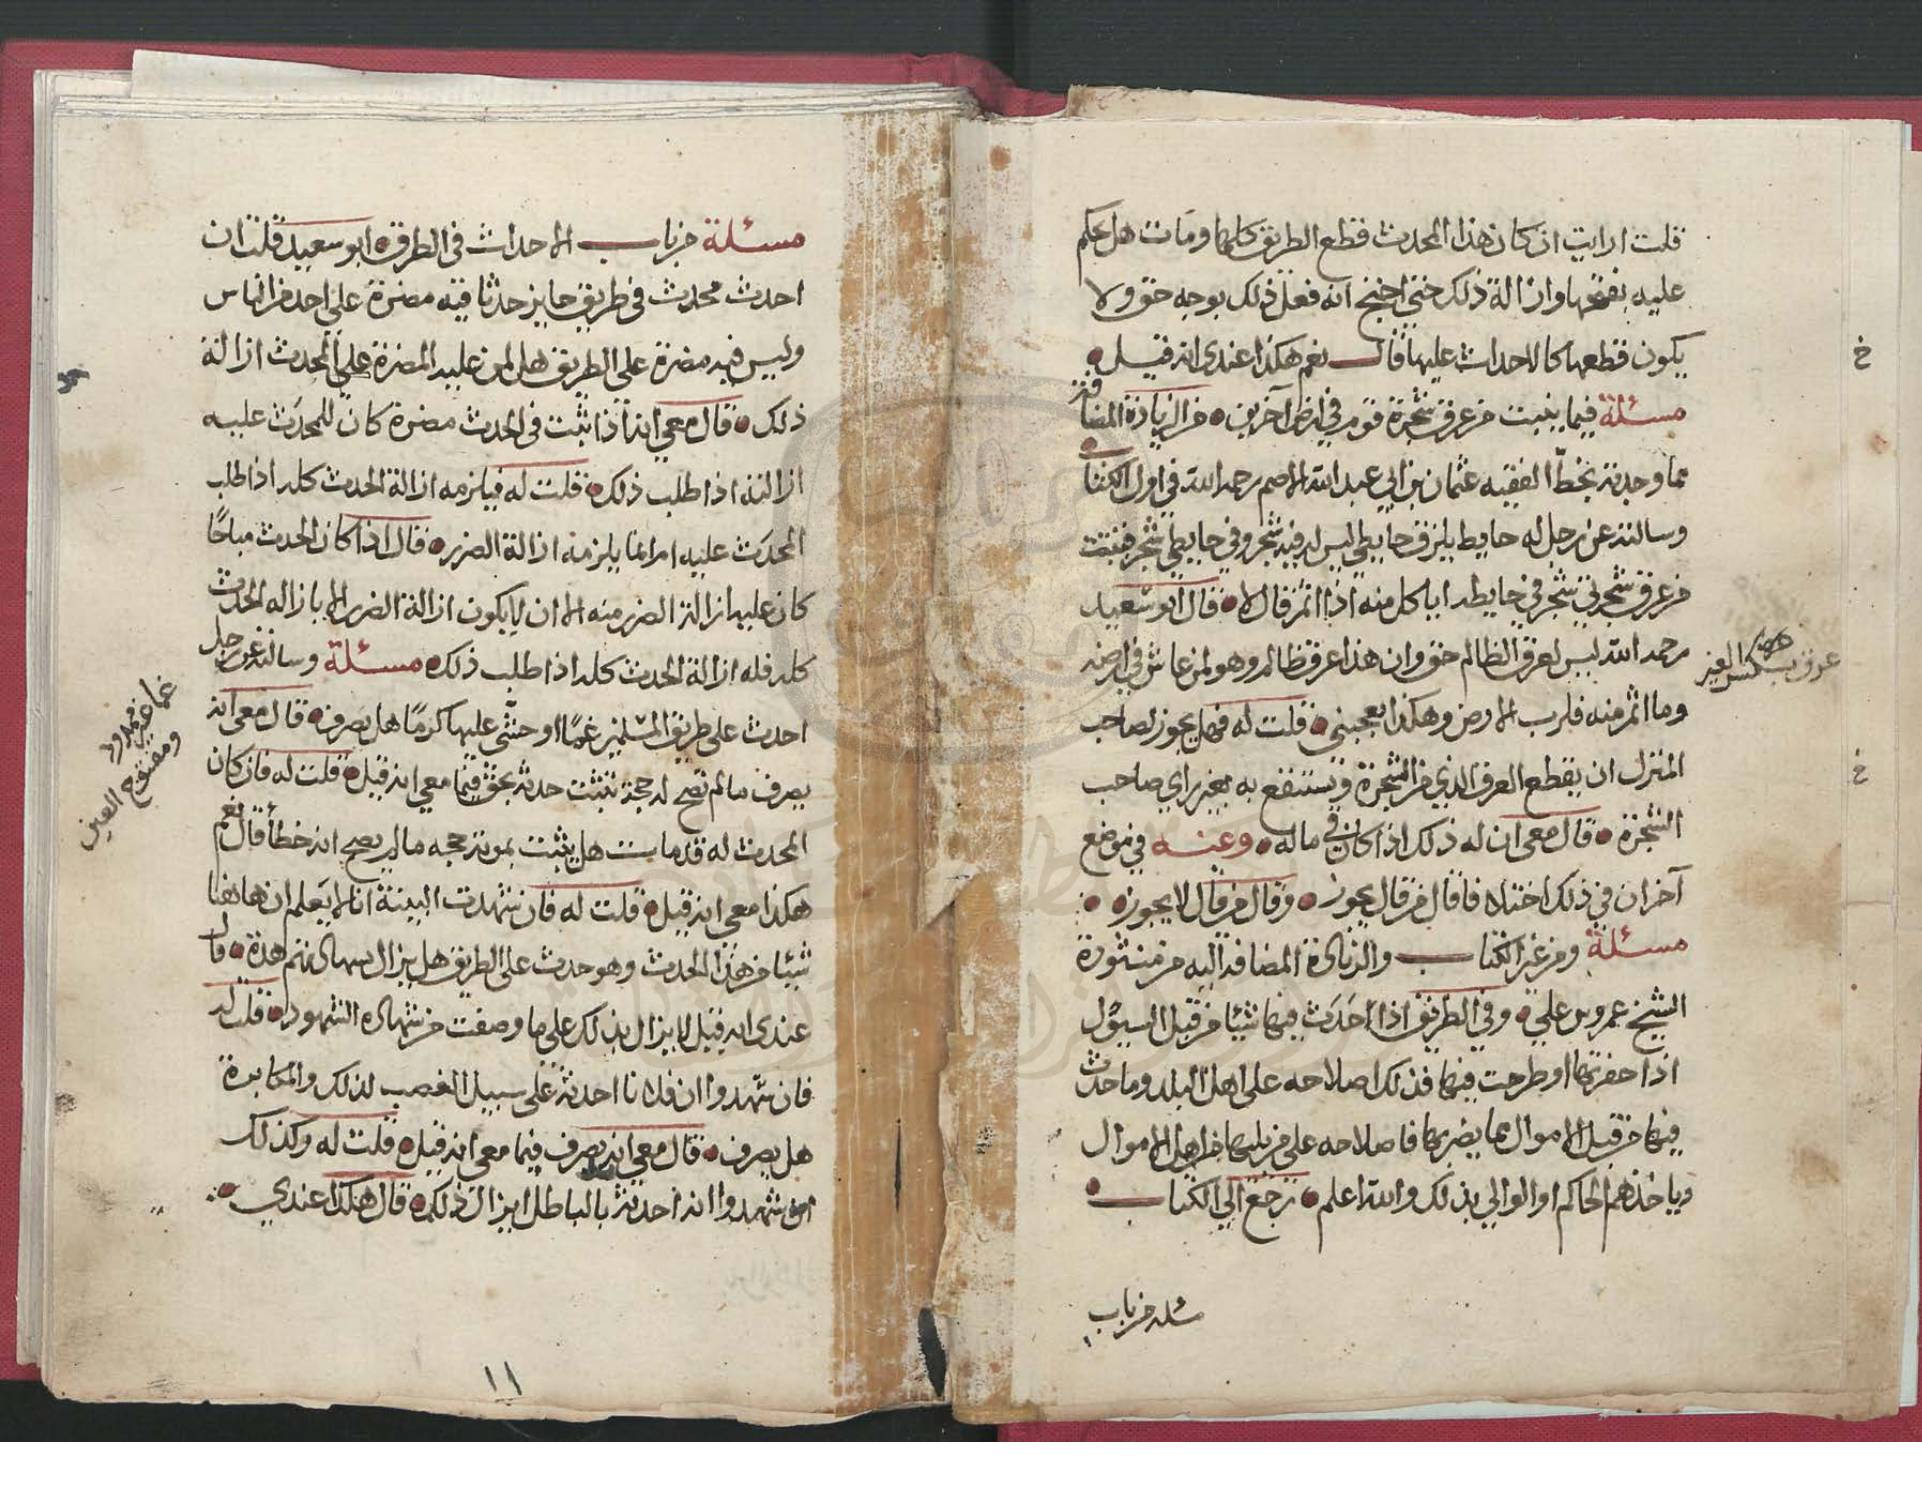 قلت ارايت ان كان هذا المحدث قطع الطريق كلها ومات هل يحكم
عليه بفتحها وازالة ذلك حتى يحتج انه فعل ذلك بوجه حق ولا
يكون قطعها كالاحداث عليها قال نعم هكذا عندي انه قيل
مسئلة فيما ينبت من عرق شجرة قوم في ارض آخرين من الزيادة المضافة
مما وجدته بخط الفقيه عثمان بن ابي عبد الله الاصم رحمه الله في اول الكتاب
وسالته عن رجل له حايط يلزق حايطي ليس له فيه شجر وفي حايطي شجر فنبتت
من عرق شجرتي شجر في حايطه اياكل منه اذا اثمر قال لا قال ابو سعيد
رحمه الله ليس لعرق الظالم حق وان هذا عرق ظالم وهو لمن عاش في ارضه
وما اثمر منه فلرب الارض وهكذا يعجبني قلت له فهل يجوز لصاحب
المنزل ان يقطع العرق الذي من الشجرة ويستنفع به بغير راي صاحب
الشجرة قال معي ان له ذلك اذا كان في ماله وعنه في موضع
آخر ان في ذلك اختلافا قال من قال يجوز وقال من قال لا يجوز
مسئلة ومن غير الكتاب والزيادة المضافة اليه من منثورة
الشيخ عمرو بن علي وفي الطريق اذا احدث فيها شيئا من قبل السيول
اذا حفرتها او طرحت فيها فذلك اصلاحه على اهل البلد وما حدث
فيها من قبل الاموال مما يضر بها فاصلاحه على من يليها من اهل الاموال
وياخذهم الحاكم او الوالي بذلك والله اعلم ترجع الى الكتاب
مسئلة من باب
خ
عرق بكسر العين
خ
مسئلة من باب الاحداث في الطرق ابو سعيد قلت ان
احدث محدث في طريق جايز حدثا فيه مضرة على احد من الناس
وليس فيه مضرة على الطريق هل لمن عليه المضرة على المحدث ازالة
ذلك قال معي انه اذا ثبت في الحدث مضرة كان للمحدث عليه
ازالته اذا طلب ذلك قلت له فيلزمه ازالة الحدث كله اذا طلب
المحدث عليه ام انما يلزمه ازالة الضرر قال اذا كان الحدث مباحا
كان عليه ازالة الضرر منه الا ان لا يكون ازالة الضرر الا بازالة الحدث
كله فله ازالة الحدث كله اذا طلب ذلك مسئلة وسالته عن رجل
احدث على طريق المسلمين غما او حنى عليها كرما هل يصرف قال معي انه
يصرف ما لم تصح له حجة تثبت حدثه بحق فيما معي انه قيل قلت له فان كان
المحدث له قد مات هل يثبت بموته حجه ما لم يصح انه خطأ قال نعم
هكذا معي انه قيل قلت له فان شهدت البينة انا لا يعلم ان هاهنا
شيئا من هذا الحدث وهو حدث على الطريق هل يزال بشهادتهم هذة قال
عندي انه قيل لا يزال بذلك على ما وصفت من شهادة الشهود قلت له
فان شهدوا ان فلانا احدثه على سبيل الغصب لذلك والمكابرة
هل يصرف قال معي انه يصرف فيما معي انه قيل قلت له وكذلك
ان شهدوا انه احدثه بالباطل ايزال ذلك قال هكذا عندي
ومفتوح العين
١١